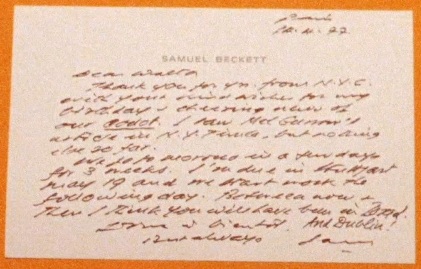 Paris
12.4.77
SAMUEL BECKETT
Dear Walter
Thank you for yrs. from N.Y.C.
with your wishes for my
birthday & cheering news of
our Godot. I saw Mel Gussow's
article in N.Y. Times, but nothing
else so far.
We go to Morocco in a few days
for 3 weeks. I'm due in Stuttgart
May 19 and we start work the
following day. Between now &
then I think you will have been in
And Dublin!
à bientôt.
always
Sam